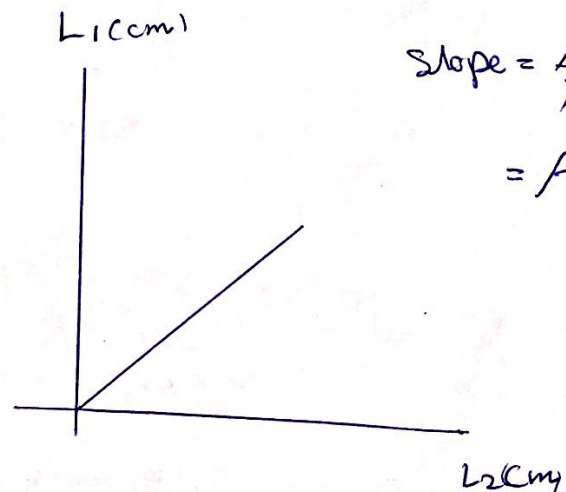 L₁(cm)
Slope =
=
L₂(cm)